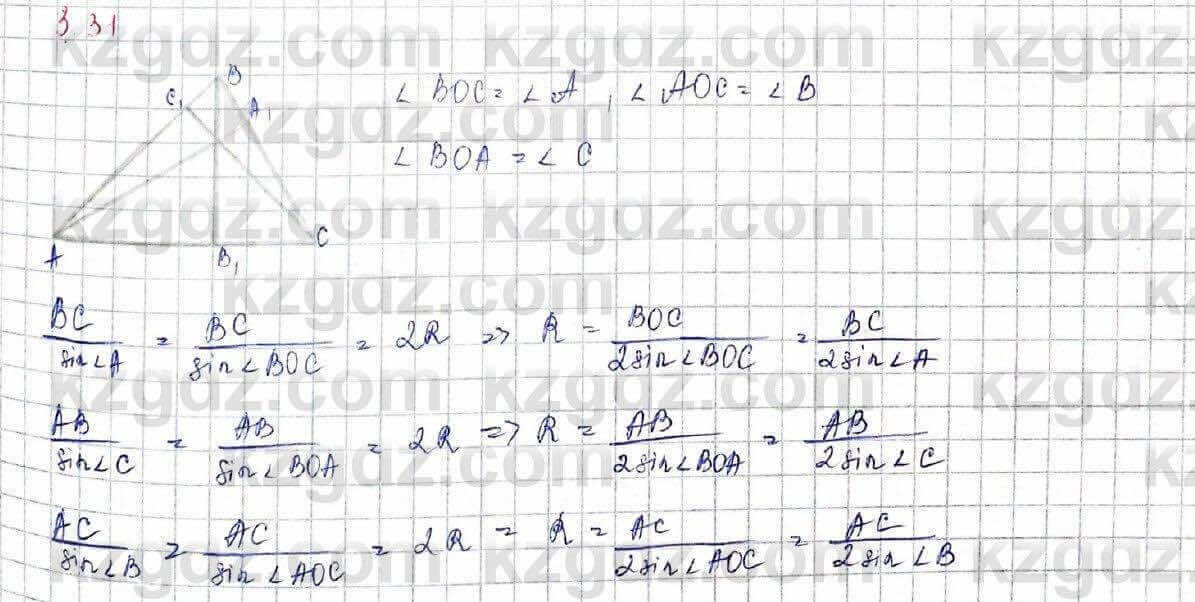 3.31
kzgdz.com
B
C₁
A₁
A
B₁
C
∠BOC = ∠A, ∠AOC = ∠B
∠BOA = ∠C
BC/sin∠A = BC/sin∠BOC = 2R => R = BOC/2sin∠BOC = BC/2sin∠A
AB/sin∠C = AB/sin∠BOA = 2R => R = AB/2sin∠BOA = AB/2sin∠C
AC/sin∠B = AC/sin∠AOC = 2R = R = AC/2sin∠AOC = AC/2sin∠B